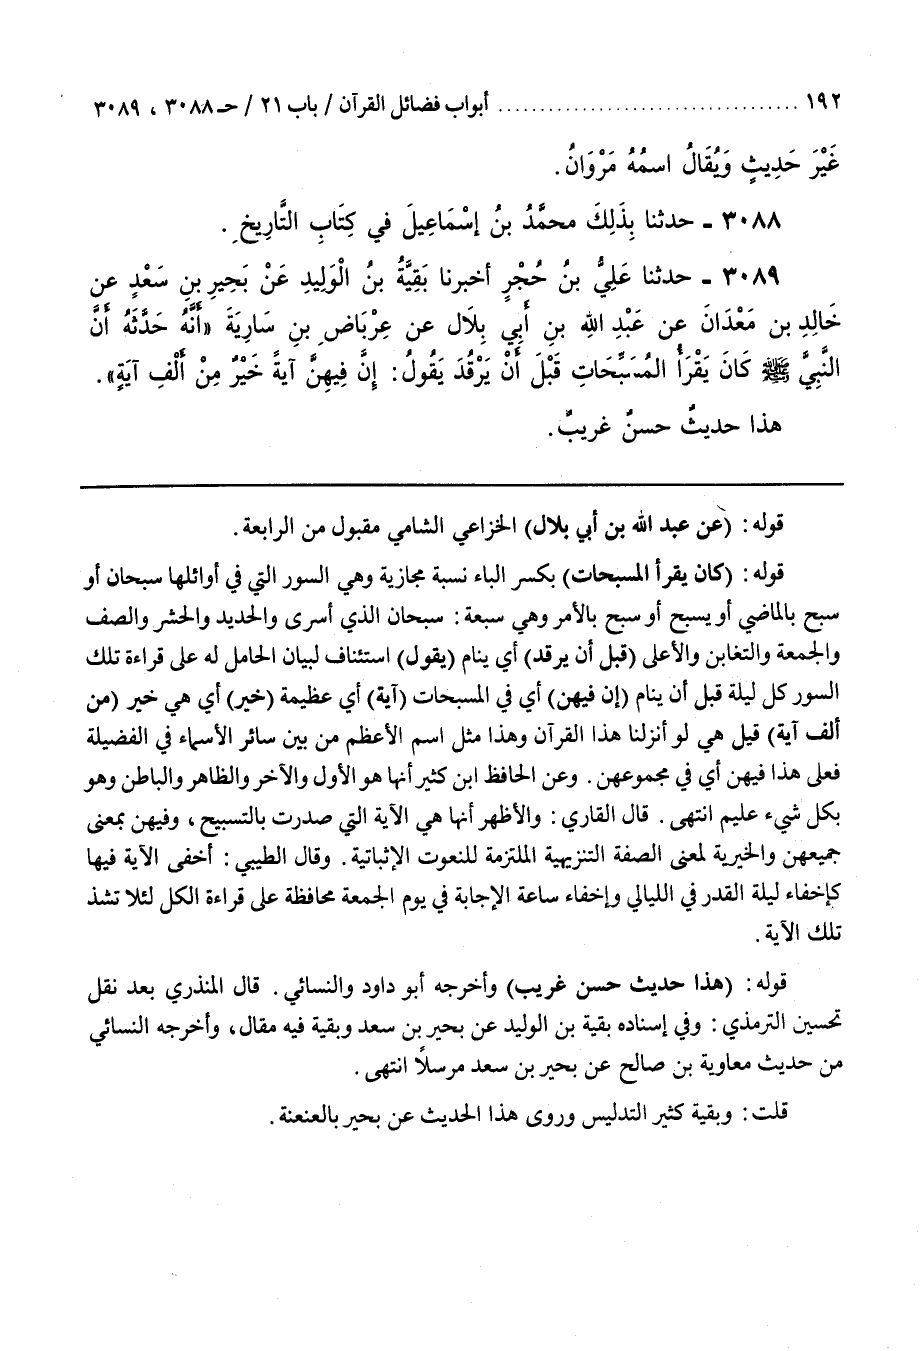 ١٩٢ .................................... أبواب فضائل القرآن / باب ٢١ / حـ ٣٠٨٨ ، ٣٠٨٩
غَيْرَ حَدِيثٍ وَيُقَالُ اسمُهُ مَرْوَانُ.
٣٠٨٨ ـ حدثنا بِذَلِكَ محمَّدُ بنُ إسْمَاعِيلَ في كِتَابِ التَّارِيخِ.
٣٠٨٩ ـ حدثنا عَلِيُّ بنُ حُجْرٍ أخبرنا بَقِيَّةُ بنُ الْوَلِيدِ عَنْ بَحِيرِ بنِ سَعْدٍ عن
خَالِدِ بن مَعْدَانَ عن عَبْدِ اللهِ بنِ أَبِي بِلَالٍ عن عِرْبَاضِ بنِ سَارِيَةَ «أَنَّهُ حَدَّثَهُ أَنَّ
النَّبِيَّ ﷺ كَانَ يَقْرَأُ المُسَبِّحَاتِ قَبْلَ أَنْ يَرْقُدَ يَقُولُ: إِنَّ فِيهِنَّ آيَةً خَيْرٌ مِنْ أَلْفِ آيَةٍ».
هذا حديثٌ حسنٌ غريبٌ.
قوله: (عن عبد الله بن أبي بلال) الخزاعي الشامي مقبول من الرابعة.
قوله: (كان يقرأ المسبحات) بكسر الباء نسبة مجازية وهي السور التي في أوائلها سبحان أو
سبح بالماضي أو يسبح أو سبح بالأمر وهي سبعة: سبحان الذي أسرى والحديد والحشر والصف
والجمعة والتغابن والأعلى (قبل أن يرقد) أي ينام (يقول) استئناف لبيان الحامل له على قراءة تلك
السور كل ليلة قبل أن ينام (إن فيهن) أي في المسبحات (آية) أي عظيمة (خير) أي هي خير (من
ألف آية) قيل هي لو أنزلنا هذا القرآن وهذا مثل اسم الأعظم من بين سائر الأسماء في الفضيلة
فعلى هذا فيهن أي في مجموعهن. وعن الحافظ ابن كثير أنها هو الأول والآخر والظاهر والباطن وهو
بكل شيء عليم انتهى. قال القاري: والأظهر أنها هي الآية التي صدرت بالتسبيح، وفيهن بمعنى
جميعهن والخيرية لمعنى الصفة التنزيهية الملتزمة للنعوت الإثباتية. وقال الطيبي: أخفى الآية فيها
كإخفاء ليلة القدر في الليالي وإخفاء ساعة الإجابة في يوم الجمعة محافظة على قراءة الكل لئلا تشذ
تلك الآية.
قوله: (هذا حديث حسن غريب) وأخرجه أبو داود والنسائي. قال المنذري بعد نقل
تحسين الترمذي: وفي إسناده بقية بن الوليد عن بحير بن سعد وبقية فيه مقال، وأخرجه النسائي
من حديث معاوية بن صالح عن بحير بن سعد مرسلاً انتهى.
قلت: وبقية كثير التدليس وروى هذا الحديث عن بحير بالعنعنة.